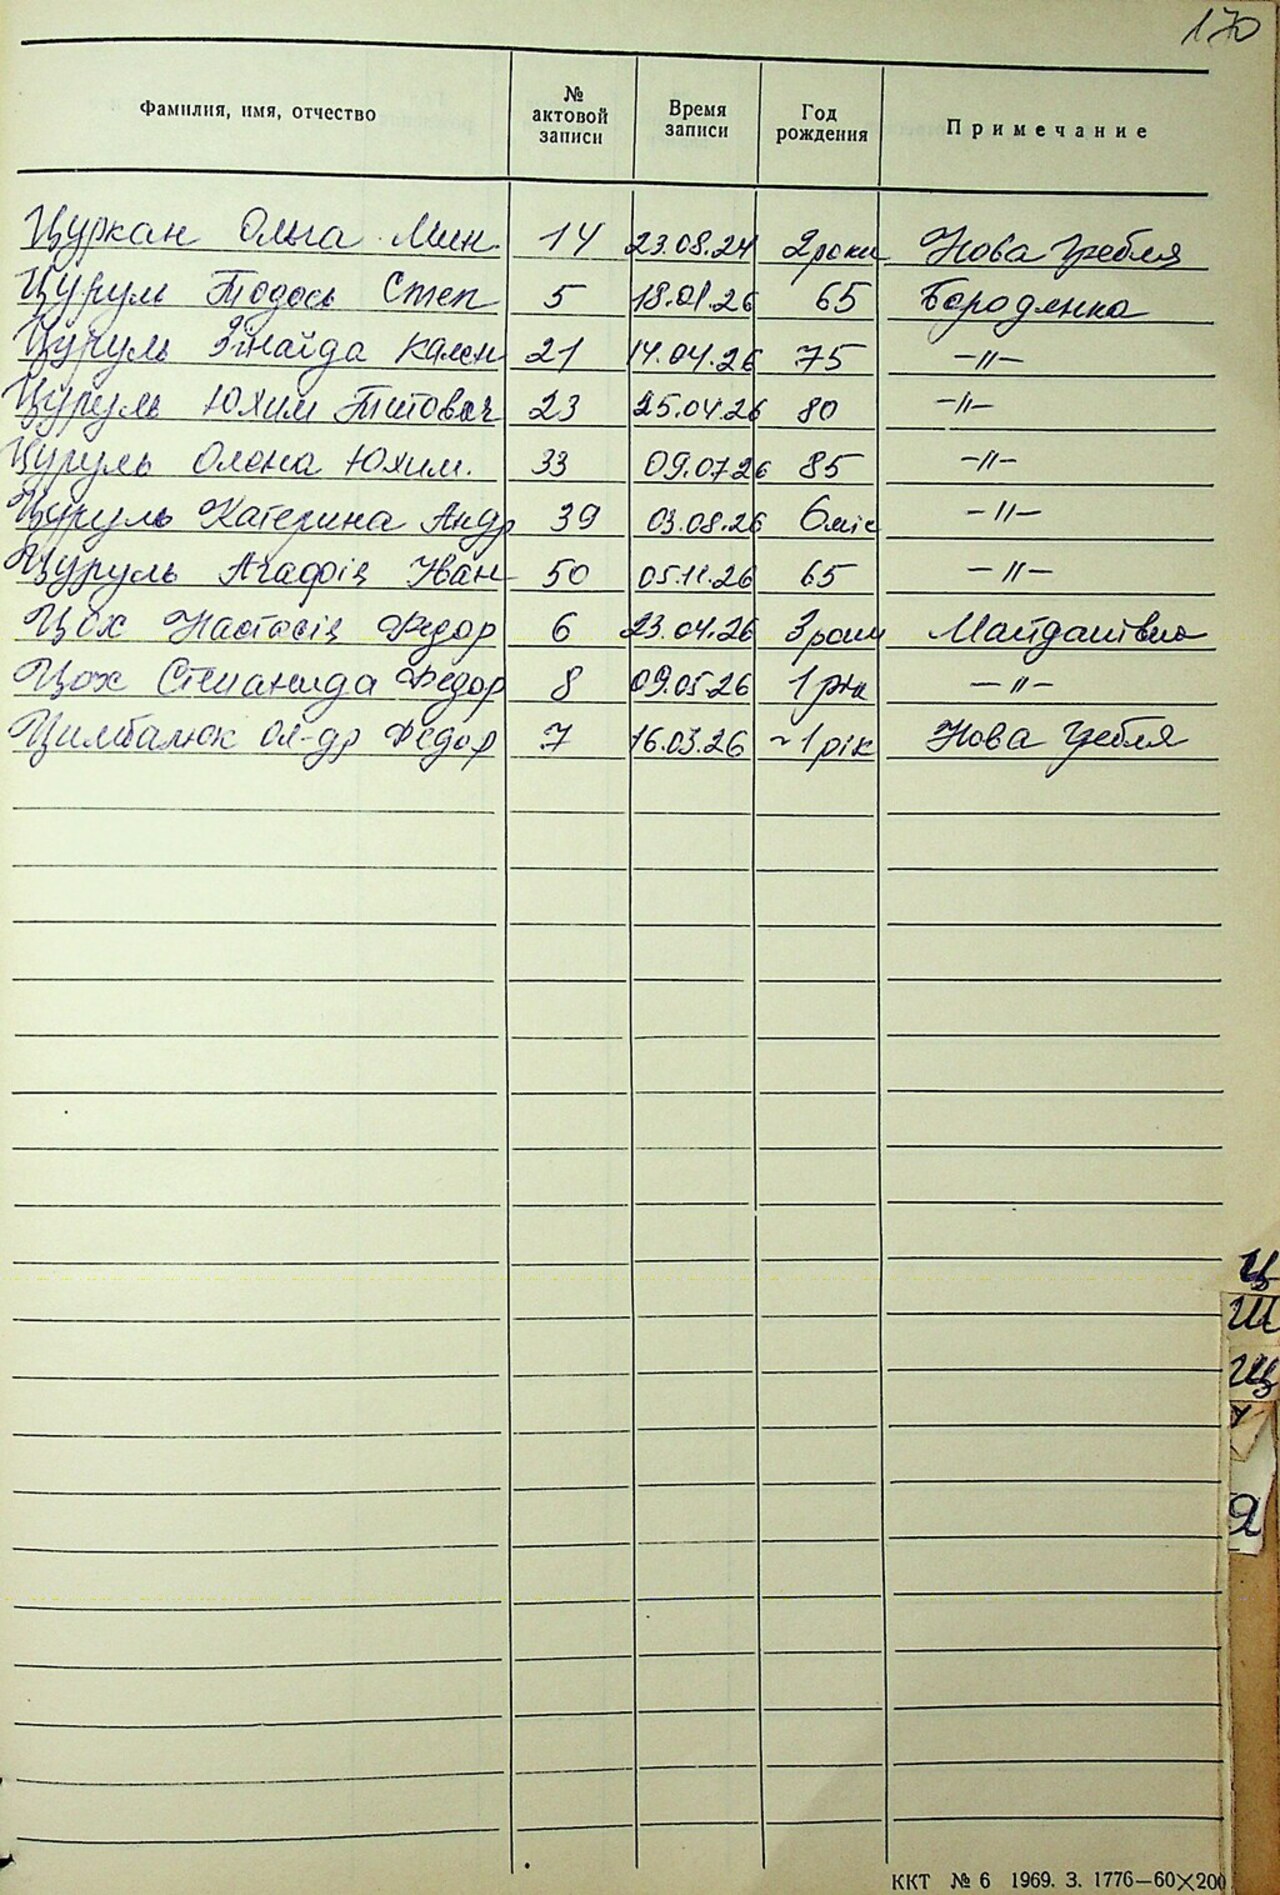 170
Фамилия, имя, отчество № актовой записи Время записи Год рождения Примечание
Цуркан Ольга Мин. 14 23.08.24 2 роки Нова Гребля
Цуруль Тодось Степ 5 18.01.26 65 Бородянка
Цуруль Зінаїда Кален 21 14.04.26 75 —//—
Цуруль Юхим Титович 23 25.04.26 80 —//—
Цуруль Олена Юхим. 33 09.07.26 85 —//—
Цуруль Катерина Андр 39 03.08.26 6 міс —//—
Цуруль Агафія Іван 50 05.11.26 65 —//—
Цох Настасія Федор 6 23.04.26 3 роки Майданівка
Цох Степанида Федор 8 09.05.26 1 рік —//—
Цимбалюк Ол-др Федор 7 16.03.26 ~1 рік Нова Гребля
Ц
Ш
Щ
Я
ККТ № 6 1969. З. 1776—60×200